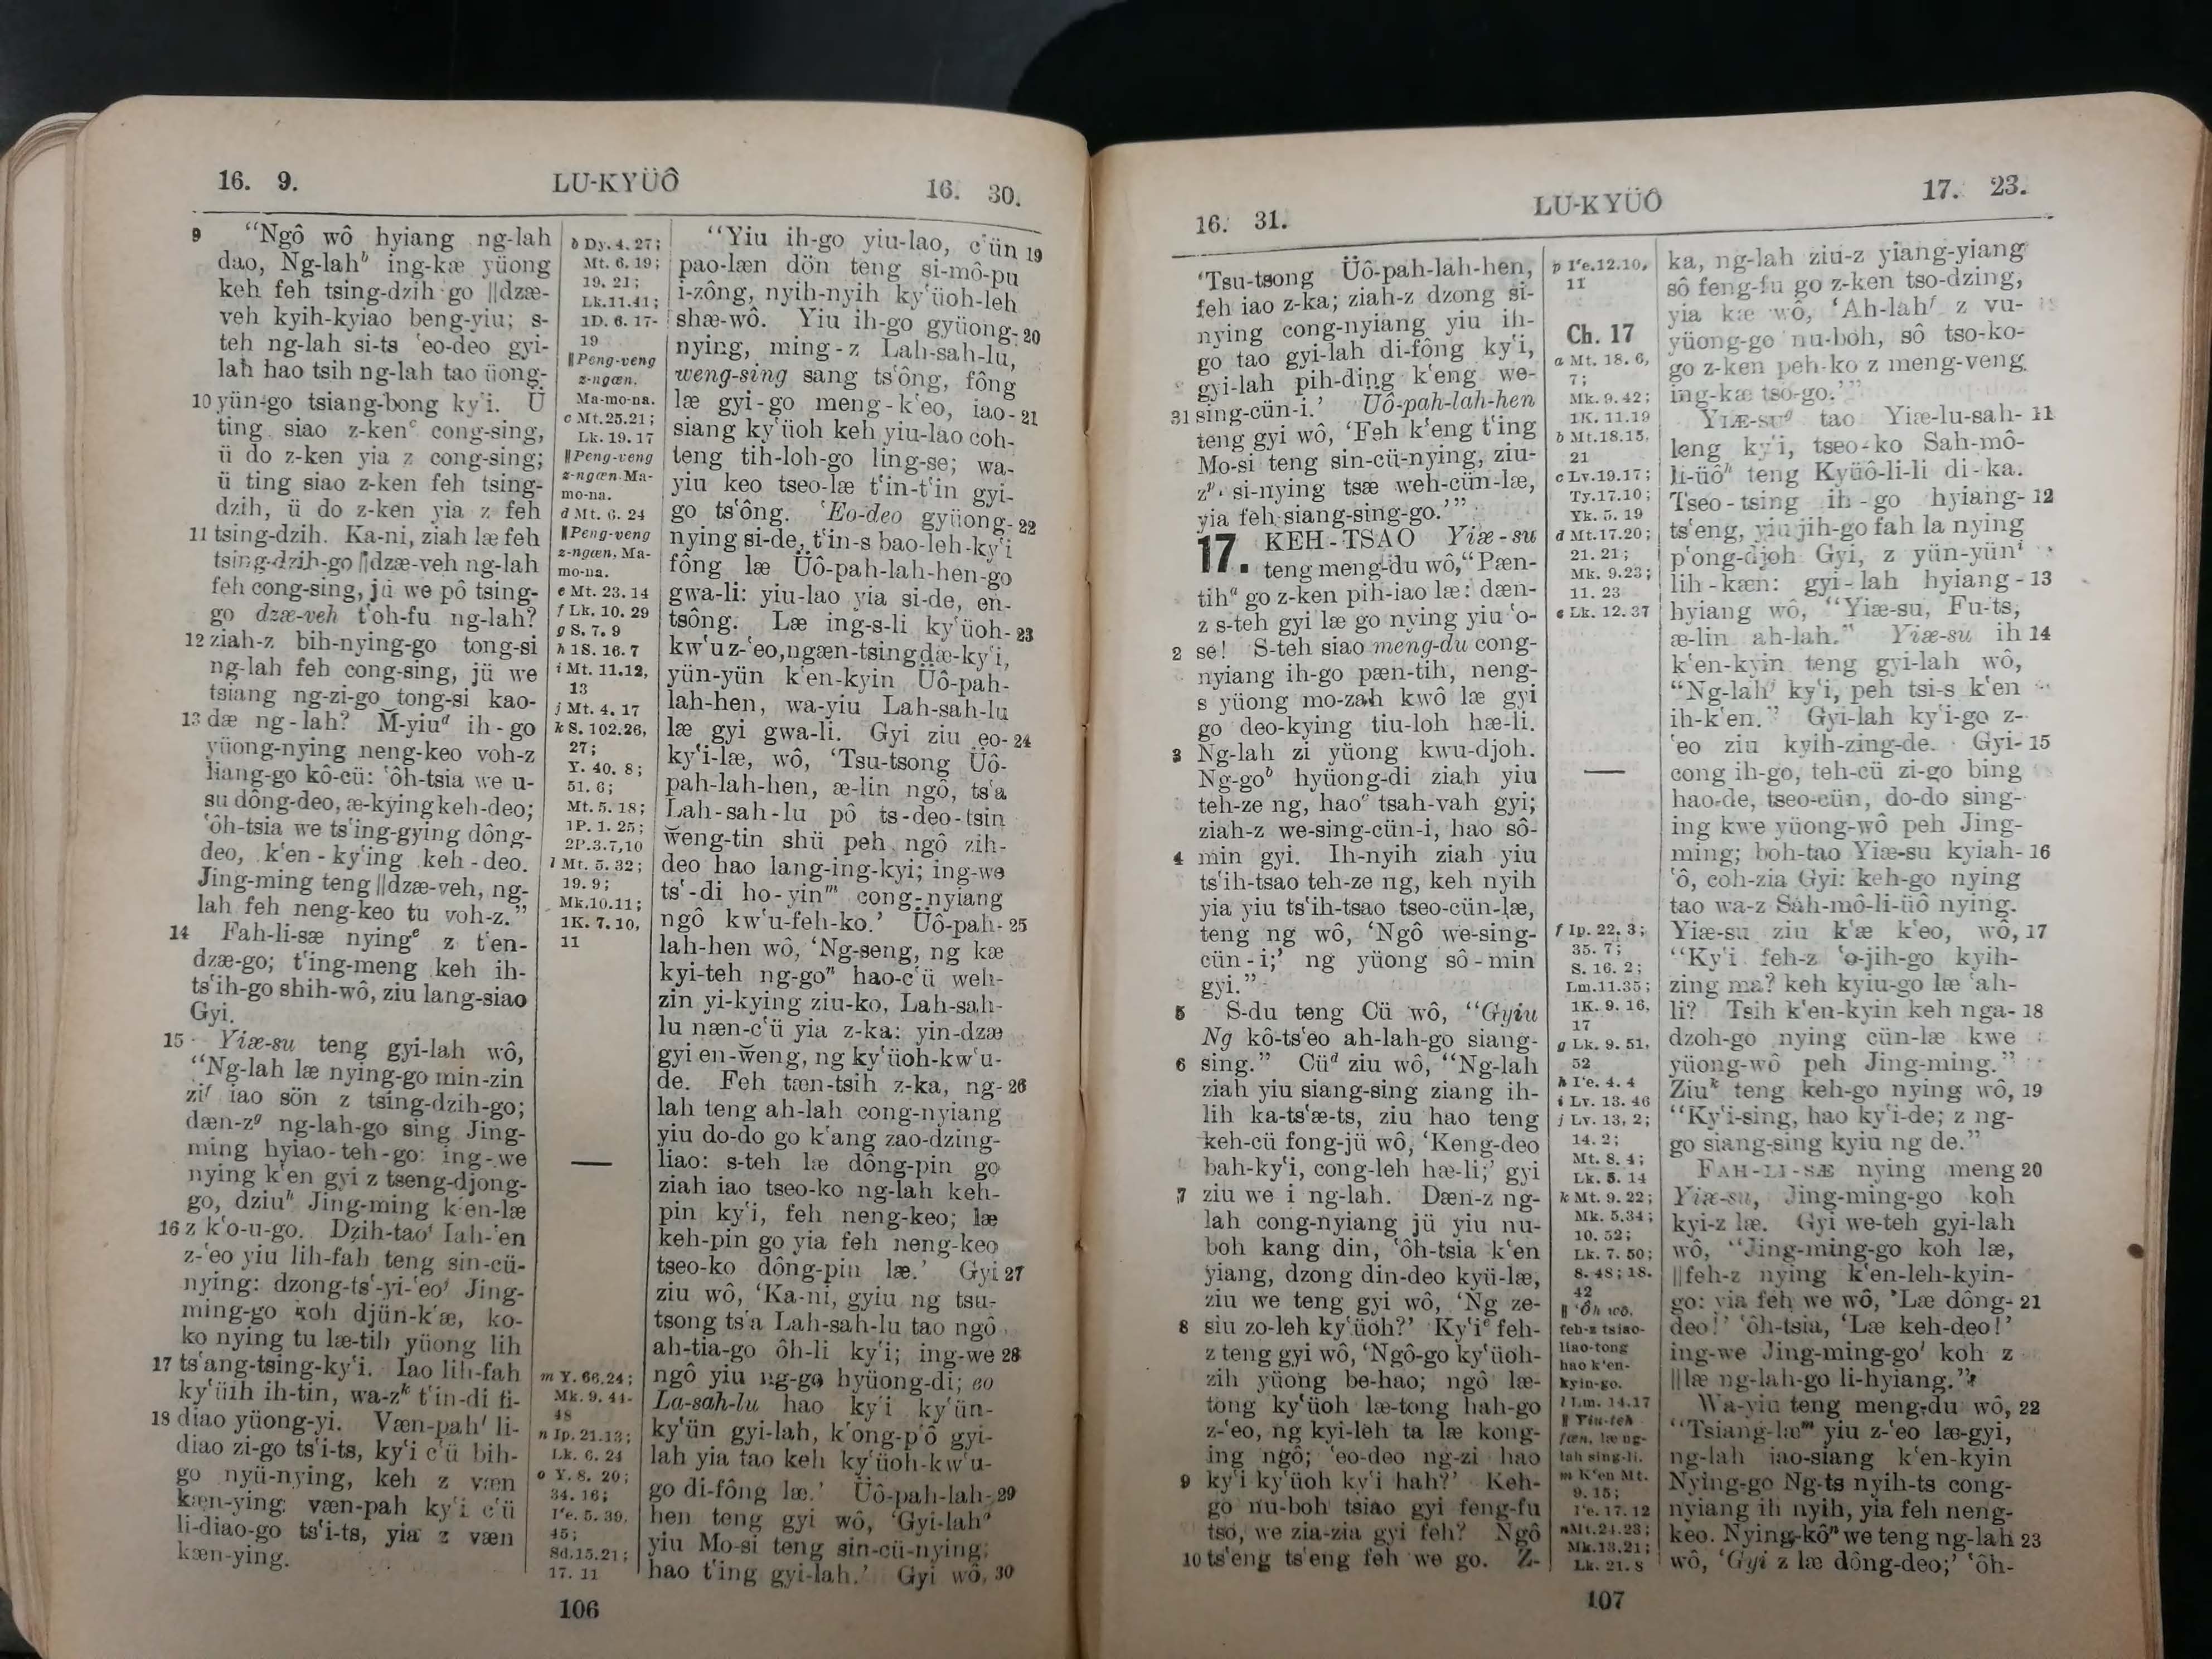 16. 9.
LU-KYÜÔ
16. 30.
9 “Ngô wô hyiang ng-lah
dao, Ng-lahᵇ ing-kæ yüong
keh feh tsing-dzih-go ||dzæ-
veh kyih-kyiao beng-yiu; s-
teh ng-lah si-ts ʻeo-deo gyi-
lah hao tsih ng-lah tao üong-
10 yün-go tsiang-bong kyʻi. Ü
ting siao z-kenᶜ cong-sing,
ü do z-ken yia z cong-sing;
ü ting siao z-ken feh tsing-
dzih, ü do z-ken yia z feh
11 tsing-dzih. Ka-ni, ziah læ feh
tsing-dzih-go ||dzæ-veh ng-lah
feh cong-sing, jü we pô tsing-
go dzæ-veh tʻoh-fu ng-lah?
12 ziah-z bih-nying-go tong-si
ng-lah feh cong-sing, jü we
tsiang ng-zi-go tong-si kao-
13 dæ ng-lah? M̆-yiuᵈ ih-go
yüong-nying neng-keo voh-z
liang-go kô-cü: ʻôh-tsia we u-
su dông-deo, æ-kying keh-deo;
ʻôh-tsia we tsʻing-gying dông-
deo, kʻen-kyʻing keh-deo.
Jing-ming teng ||dzæ-veh, ng-
lah feh neng-keo tu voh-z.”
14 Fah-li-sæ nyingᵉ z tʻen-
dzæ-go; tʻing-meng keh ih-
tsʻih-go shih-wô, ziu lang-siao
Gyi.
15 Yiæ-su teng gyi-lah wô,
“Ng-lah læ nying-go min-zin
ziᶠ iao sön z tsing-dzih-go;
dæn-zᵍ ng-lah-go sing Jing-
ming hyiao-teh-go: ing-we
nying kʻen gyi z tseng-djong-
go, dziuʰ Jing-ming kʻen-læ
16 z kʻo-u-go. Dzih-taoⁱ Iah-ʻen
z-ʻeo yiu lih-fah teng sin-cü-
nying: dzong-tsʻ-yi-ʻeoʲ Jing-
ming-go koh djün-kʻæ, ko-
ko nying tu læ-tih yüong lih
17 tsʻang-tsing-kyʻi. Iao lih-fah
kyʻüih ih-tin, wa-zᵏ tʻin-di fi-
18 diao yüong-yi. Væn-pahˡ li-
diao zi-go tsʻi-ts, kyʻi cʻü bih-
go nyü-nying, keh z væn
kæn-ying: væn-pah kyʻi cʻü
li-diao-go tsʻi-ts, yia z væn
kæn-ying.
b Dy. 4. 27;
Mt. 6. 19;
19. 21;
Lk. 11. 41;
1D. 6. 17-
19
||Peng-veng
z-ngæn.
Ma-mo-na.
c Mt. 25. 21;
Lk. 19. 17
||Peng-veng
z-ngæn. Ma-
mo-na.
d Mt. 6. 24
||Peng-veng
z-ngæn. Ma-
mo-na.
e Mt. 23. 14
f Lk. 10. 29
g S. 7. 9
h 1S. 16. 7
i Mt. 11.12,
13
j Mt. 4. 17
k S. 102.26,
27;
Y. 40. 8;
51. 6;
Mt. 5. 18;
1P. 1. 25;
2P.3.7,10
l Mt. 5. 32;
19. 9;
Mk.10.11;
1K. 7. 10,
11
m Y. 66.24;
Mk. 9. 44-
48
n Ip. 21.13;
Lk. 6. 24
o Y. 8. 20;
34. 16;
Iʻe. 5. 39,
45;
Sd.15.21;
17. 11
“Yiu ih-go yiu-lao, cʻün 19
pao-læn dön teng si-mô-pu
i-zông, nyih-nyih kyʻüoh-leh
shæ-wô. Yiu ih-go gyüong- 20
nying, ming-z Lah-sah-lu,
weng-sing sang tsʻông, fông
læ gyi-go meng-kʻeo, iao- 21
siang kyʻüoh keh yiu-lao coh-
teng tih-loh-go ling-se; wa-
yiu keo tseo-læ tʻin-tʻin gyi-
go tsʻông. ʻEo-deo gyüong- 22
nying si-de, tʻin-s bao-leh-kyʻi
fông læ Üô-pah-lah-hen-go
gwa-li: yiu-lao yia si-de, en-
tsông. Læ ing-s-li kyʻüoh- 23
kwʻu z-ʻeo, ngæn-tsing dæ-kyʻi,
yün-yün kʻen-kyin Üô-pah-
lah-hen, wa-yiu Lah-sah-lu
læ gyi gwa-li. Gyi ziu eo- 24
kyʻi-læ, wô, ‘Tsu-tsong Üô-
pah-lah-hen, æ-lin ngô, tsʻa
Lah-sah-lu pô ts-deo-tsin
w̆eng-tin shü peh ngô zih-
deo hao lang-ing-kyi; ing-we
tsʻ-di ho-yinᵐ cong-nyiang
ngô kwʻu-feh-ko.’ Üô-pah- 25
lah-hen wô, ‘Ng-seng, ng kæ
kyi-teh ng-goⁿ hao-cʻü weh-
zin yi-kying ziu-ko, Lah-sah-
lu næn-cʻü yia z-ka: yin-dzæ
gyi en-w̆eng, ng kyʻüoh-kwʻu-
de. Feh tæn-tsih z-ka, ng- 26
lah teng ah-lah cong-nyiang
yiu do-do go kʻang zao-dzing-
liao: s-teh læ dông-pin go
ziah iao tseo-ko ng-lah keh-
pin kyʻi, feh neng-keo; læ
keh-pin go yia feh neng-keo
tseo-ko dông-pin læ.’ Gyi 27
ziu wô, ‘Ka-ni, gyiu ng tsu-
tsong tsʻa Lah-sah-lu tao ngô
ah-tia-go ôh-li kyʻi; ing-we 28
ngô yiu ng-go hyüong-di; eo
La-sah-lu hao kyʻi kyʻün-
kyʻün gyi-lah, kʻong-pʻô gyi-
lah yia tao keh kyʻüoh-kwʻu-
go di-fông læ.’ Üô-pah-lah- 29
hen teng gyi wô, ‘Gyi-lahᵒ
yiu Mo-si teng sin-cü-nying;
hao tʻing gyi-lah.’ Gyi wô, 30
106
16. 31.
LU-KYÜÔ
17. 23.
‘Tsu-tsong Üô-pah-lah-hen,
feh iao z-ka; ziah-z dzong si-
nying cong-nyiang yiu ih-
go tao gyi-lah di-fông kyʻi,
gyi-lah pih-ding kʻeng we-
31 sing-cün-i.’ Üô-pah-lah-hen
teng gyi wô, ‘Feh kʻeng tʻing
Mo-si teng sin-cü-nying, ziu-
zᵖ si-nying tsæ weh-cün-læ,
yia feh siang-sing-go.’”
17. KEH-TSAO Yiæ-su
teng meng-du wô, “Pæn-
tihᵃ go z-ken pih-iao læ: dæn-
z s-teh gyi læ go nying yiu ʻo-
2 se! S-teh siao meng-du cong-
nyiang ih-go pæn-tih, neng-
s yüong mo-zah kwô læ gyi
go deo-kying tiu-loh hæ-li.
3 Ng-lah zi yüong kwu-djoh.
Ng-goᵇ hyüong-di ziah yiu
teh-ze ng, haoᶜ tsah-vah gyi;
ziah-z we-sing-cün-i, hao sô-
4 min gyi. Ih-nyih ziah yiu
tsʻih-tsao teh-ze ng, keh nyih
yia yiu tsʻih-tsao tseo-cün-læ,
teng ng wô, ‘Ngô we-sing-
cün-i;’ ng yüong sô-min
gyi.”
5 S-du teng Cü wô, “Gyiu
Ng kô-tsʻeo ah-lah-go siang-
6 sing.” Cüᵈ ziu wô, “Ng-lah
ziah yiu siang-sing ziang ih-
lih ka-tsʻæ-ts, ziu hao teng
keh-cü fong-jü wô, ‘Keng-deo
bah-kyʻi, cong-leh hæ-li;’ gyi
7 ziu we i ng-lah. Dæn-z ng-
lah cong-nyiang jü yiu nu-
boh kang din, ʻôh-tsia kʻen
yiang, dzong din-deo kyü-læ,
ziu we teng gyi wô, ‘Ng ze-
8 siu zo-leh kyʻüoh?’ Kyʻiᵉ feh-
z teng gyi wô, ‘Ngô-go kyʻüoh-
zih yüong be-hao; ngô læ-
tong kyʻüoh læ-tong hah-go
z-ʻeo, ng kyi-leh ta læ kong-
ing ngô; ʻeo-deo ng-zi hao
9 kyʻi kyʻüoh kyʻi hah?’ Keh-
go nu-boh tsiao gyi feng-fu
tso, we zia-zia gyi feh? Ngô
10 tsʻeng tsʻeng feh we go. Z-
p Iʻe.12.10,
11
Ch. 17
a Mt. 18. 6,
7;
Mk. 9. 42;
1K. 11.19
b Mt.18.15,
21
c Lv.19.17;
Ty.17.10;
Yk. 5. 19
d Mt.17.20;
21. 21;
Mk. 9.23;
11. 23
e Lk. 12. 37
f Ip. 22. 3;
35. 7;
S. 16. 2;
Lm.11.35;
1K. 9. 16,
17
g Lk. 9. 51,
52
h Iʻe. 4. 4
i Lv. 13. 46
j Lv. 13, 2;
14. 2;
Mt. 8. 4;
Lk. 5. 14
k Mt. 9. 22;
Mk. 5.34;
10. 52;
Lk. 7. 50;
8. 48; 18.
42
|| ʻÔh wô,
feh-z tsiao-
liao-tong
hao kʻen-
kyin-go.
l Lm. 14.17
|| Yiu-teh
fæn, læ ng-
lah sing-li.
m Kʻen Mt.
9. 15;
Iʻe. 17. 12
n Mt.24.23;
Mk.13.21;
Lk. 21. 8
ka, ng-lah ziu-z yiang-yiang
sô feng-fu go z-ken tso-dzing,
yia kæ wô, ‘Ah-lahᶠ z vu-
yüong-go nu-boh, sô tso-ko-
go z-ken peh-ko z meng-veng
ing-kæ tso-go.’”
YIÆ-SUᵍ tao Yiæ-lu-sah- 11
leng kyʻi, tseo-ko Sah-mô-
li-üôʰ teng Kyüô-li-li di-ka.
Tseo-tsing ih-go hyiang- 12
tsʻeng, yiu jih-go fah la nying
pʻong-djoh Gyi, z yün-yünⁱ
lih-kæn: gyi-lah hyiang- 13
hyiang wô, “Yiæ-su, Fu-ts,
æ-lin ah-lah.” Yiæ-su ih 14
kʻen-kyin teng gyi-lah wô,
“Ng-lahʲ kyʻi, peh tsi-s kʻen
ih-kʻen.” Gyi-lah kyʻi-go z-
ʻeo ziu kyih-zing-de. Gyi- 15
cong ih-go, teh-cü zi-go bing
hao-de, tseo-cün, do-do sing-
ing kwe yüong-wô peh Jing-
ming; boh-tao Yiæ-su kyiah- 16
ʻô, coh-zia Gyi: keh-go nying
tao wa-z Sah-mô-li-üô nying.
Yiæ-su ziu kʻæ kʻeo, wô, 17
“Kyʻi feh-z ʻo-jih-go kyih-
zing ma? keh kyiu-go læ ʻah-
li? Tsih kʻen-kyin keh nga- 18
dzoh-go nying cün-læ kwe
yüong-wô peh Jing-ming.”
Ziuᵏ teng keh-go nying wô, 19
“Kyʻi-sing, hao kyʻi-de; z ng-
go siang-sing kyiu ng de.”
FAH-LI-SÆ nying meng 20
Yiæ-su, Jing-ming-go koh
kyi-z læ. Gyi we-teh gyi-lah
wô, “Jing-ming-go koh læ,
||feh-z nying kʻen-leh-kyin-
go: yia feh we wô, ‘Læ dông- 21
deo!’ ʻôh-tsia, ‘Læ keh-deo!’
ing-we Jing-ming-goˡ koh z
||læ ng-lah-go li-hyiang.”
Wa-yiu teng meng-du wô, 22
“Tsiang-læᵐ yiu z-ʻeo læ-gyi,
ng-lah iao-siang kʻen-kyin
Nying-go Ng-ts nyih-ts cong-
nyiang ih nyih, yia feh neng-
keo. Nying-kôⁿ we teng ng-lah 23
wô, ‘Gyi z læ dông-deo;’ ʻôh-
107